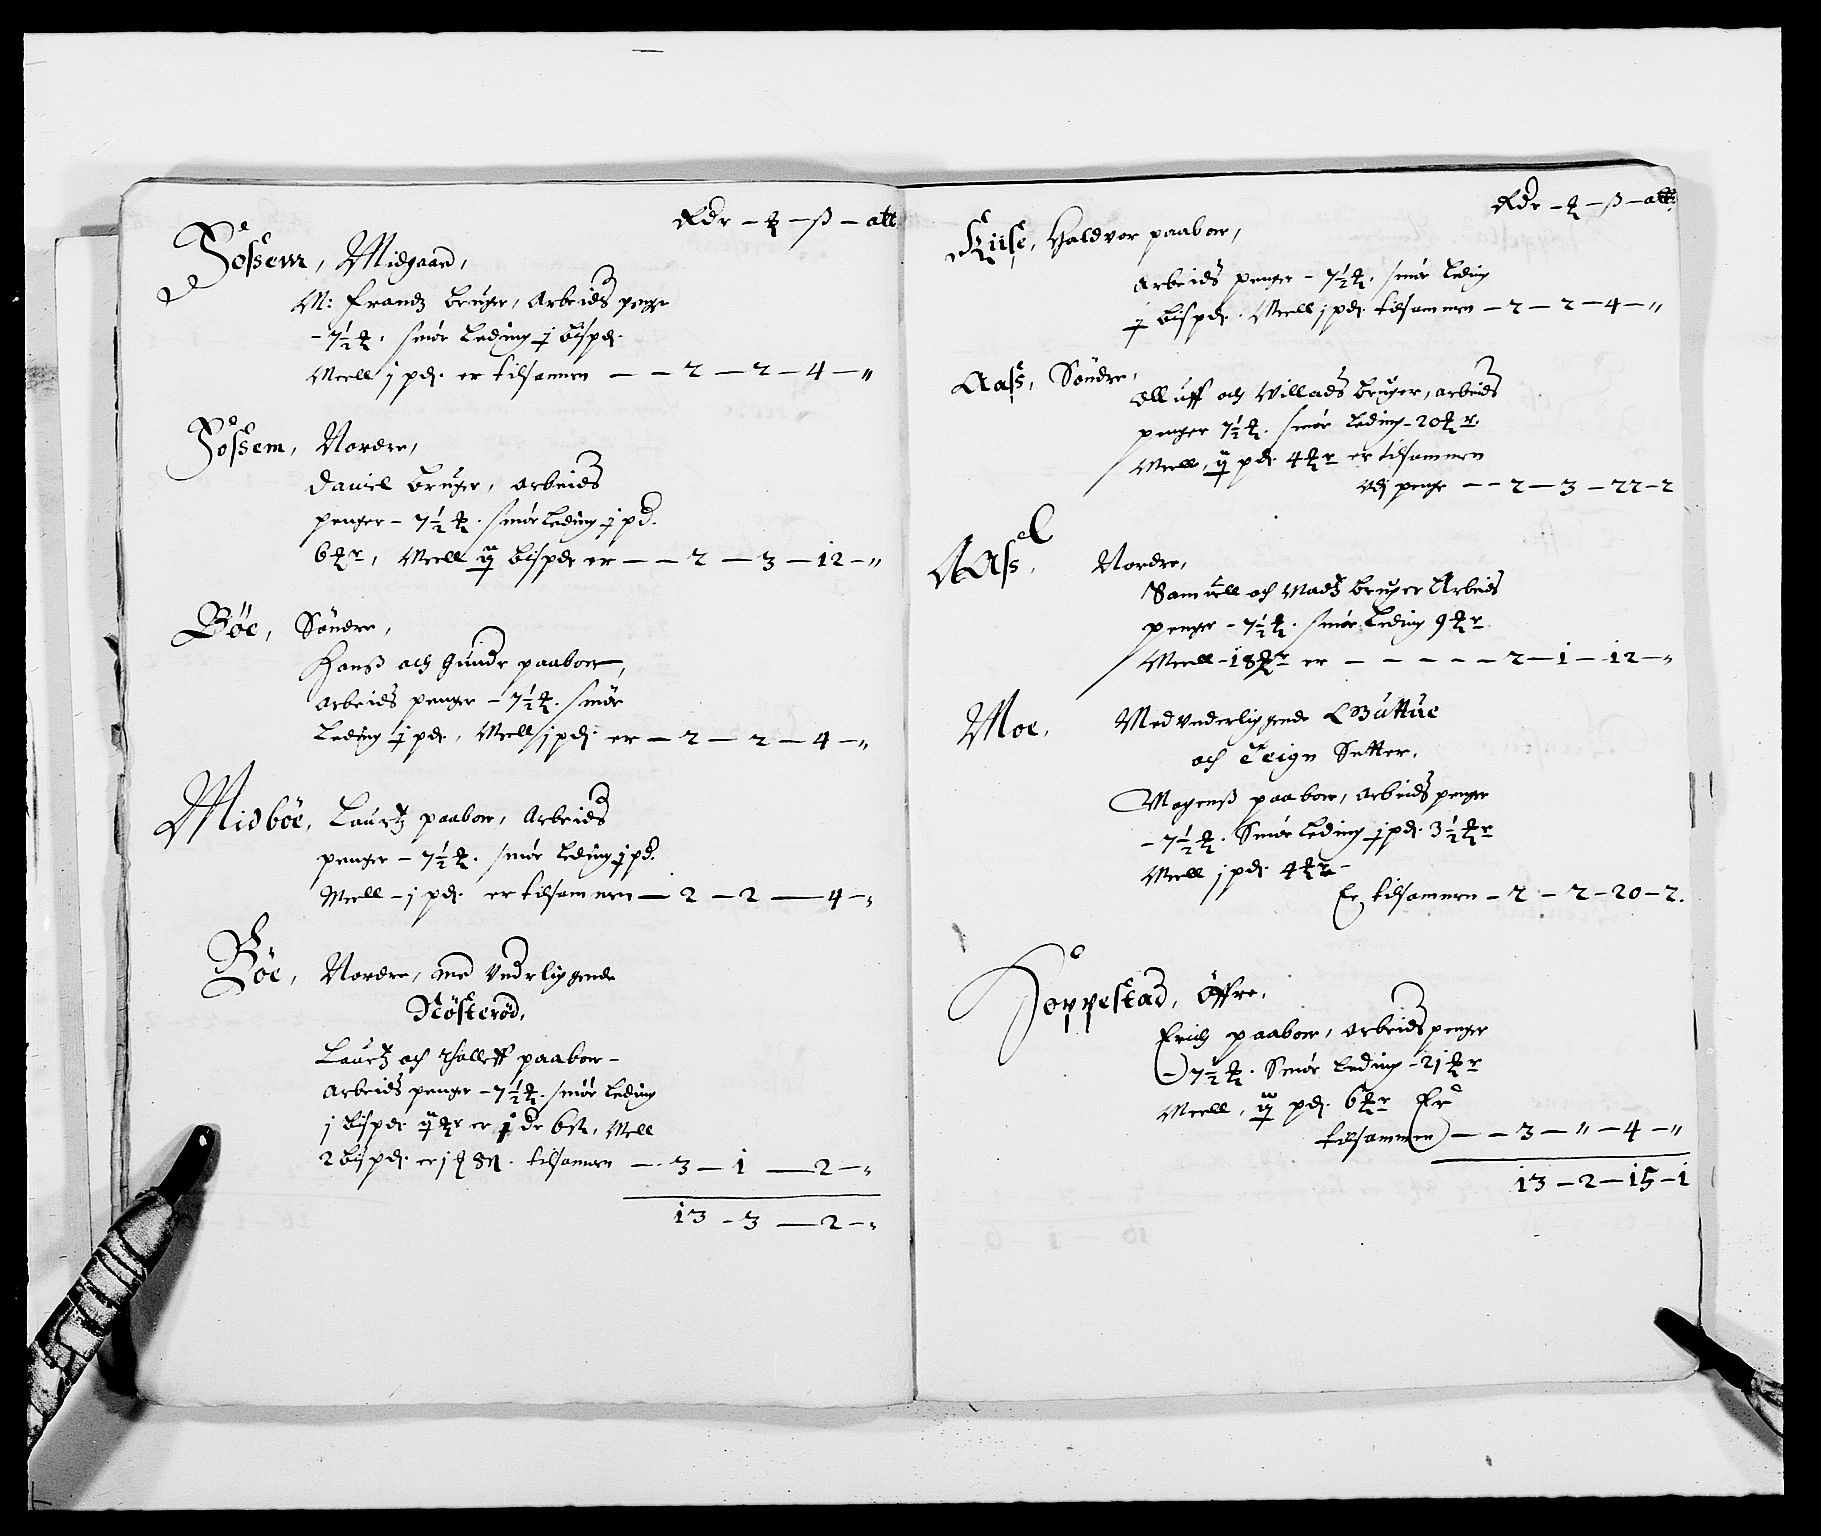 Rdr – ꝑ – ß – alb
Fossem, Midgaard,
M: Frandz bruger, Arbeids penge
– 7½ ꝑ. smør leding j bispd.
Meell j pd. er tilsamen — — 2 — 2 — 4 — „
Fossem, Nordre,
Daniel bruger, arbeids
penger – 7½ ꝑ. smør leding j pd.
6 ꝑr, Meell ij bispd er — — 2 — 3 — 12 — „
Böe, Söndre,
Hanß och Gunder paaboer,
arbeids penger – 7½ ꝑ. smør
leding j pd, Meell j pd. er — 2 — 2 — 4 — „
Midböe, Lauritz paaboer, Arbeids
penger – 7½ ꝑ. smør leding j pd.
Meell – j pd. er tilsammen — 2 — 2 — 4 — „
Böe, Nordre, med Underliggende
Nösteröd,
Lauritz och Thalleff paaboer –
Arbeids penger – 7½ ꝑ. smør leding
j bispd ij ꝑr er j dr 6 ß, Mell
2 bispd. er j ꝑ 8 ß. tilsamen — 3 — 1 — 2 — „
13 – 3 — 2 – „
Rdr – ꝑ – ß – alb:
Kiise, Haldvor paaboer,
Arbeids penger – 7½ ꝑ. smør leding
j bispd. Meell j pd. tilsammen – 2 – 2 – 4 – „
Aass, Söndre,
Olluff och Villads bruger, arbeids
penger 7½ ꝑ. smør leding – 20 ꝑr.
Meell, ij pd 4 ꝑr er tilsammen
Udj penge — – 2 — 3 — 22 – 2
Aass, Nordre,
Samuell och Madz bruger Arbeids
penger – 7½ ꝑ. smør leding 9 ꝑr
Meell – 18 ꝑr er – – – – – 2 – 1 – 12 – „
Moe, Med underliggende Buttue
och Teign Setter.
Mogenß paaboer, Arbeids penger
– 7½ ꝑ. Smør leding j pd. 3½ ꝑr
Meell j pd. 4 ꝑr –
Er tilsammen – 2 – 2 – 20 – 2.
Hoppestad, Öffre,
Erich paaboer, Arbeids penger
– 7½ ꝑ. Smør leding – 21 ꝑr
Meell, ij pd. 6 ꝑr Er
tilsammen — – 3 — „ — 4 — „
13 – 2 – 15 – 1